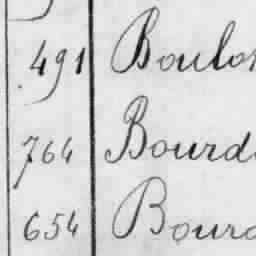 491 Boulo
764 Bourd
654 Bour